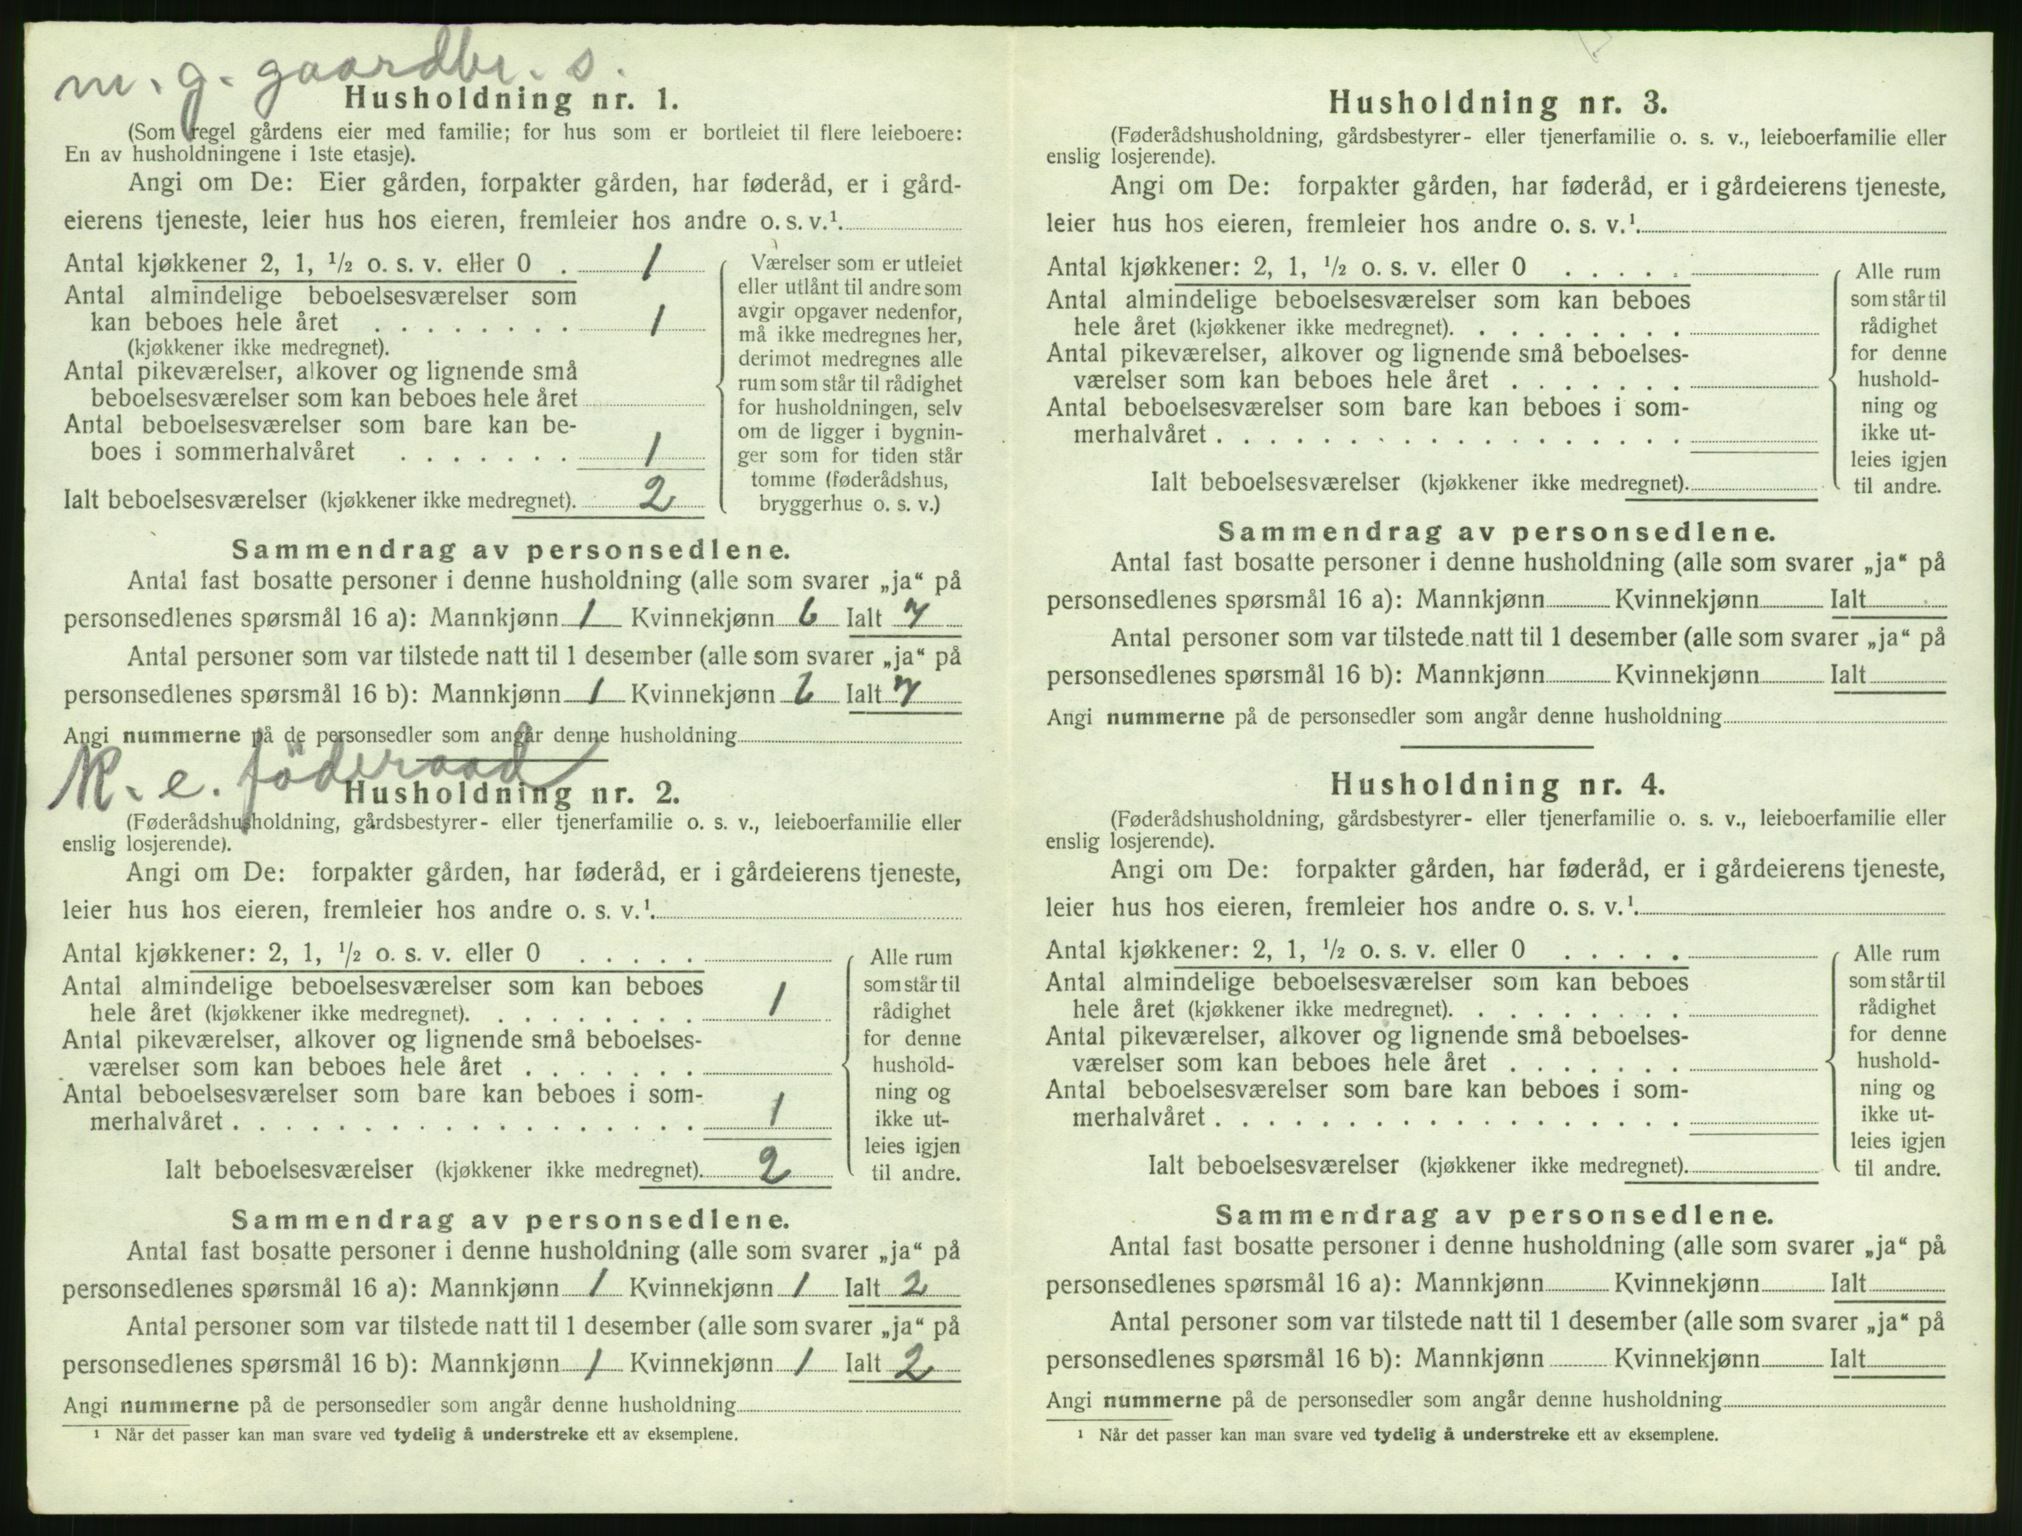 m. g. gaardbr. s.
Husholdning nr. 1.
(Som regel gårdens eier med familie; for hus som er bortleiet til flere leieboere:
En av husholdningene i 1ste etasje).
Angi om De: Eier gården, forpakter gården, har føderåd, er i gård-
eierens tjeneste, leier hus hos eieren, fremleier hos andre o. s. v.¹.
Antal kjøkkener 2, 1, ½ o. s. v. eller 0 . 1
Antal almindelige beboelsesværelser som
kan beboes hele året . . . . . . . . 1
(kjøkkener ikke medregnet).
Antal pikeværelser, alkover og lignende små
beboelsesværelser som kan beboes hele året
Antal beboelsesværelser som bare kan be-
boes i sommerhalvåret . . . . . . . 1
Ialt beboelsesværelser (kjøkkener ikke medregnet). 2
Værelser som er utleiet
eller utlånt til andre som
avgir opgaver nedenfor,
må ikke medregnes her,
derimot medregnes alle
rum som står til rådighet
for husholdningen, selv
om de ligger i bygnin-
ger som for tiden står
tomme (føderådshus,
bryggerhus o. s. v.)
Sammendrag av personsedlene.
Antal fast bosatte personer i denne husholdning (alle som svarer „ja“ på
personsedlenes spørsmål 16 a): Mannkjønn 1 Kvinnekjønn 6 Ialt 7
Antal personer som var tilstede natt til 1 desember (alle som svarer „ja“ på
personsedlenes spørsmål 16 b): Mannkjønn 1 Kvinnekjønn 6 Ialt 7
Angi nummerne på de personsedler som angår denne husholdning
K. e. föderaad
Husholdning nr. 2.
(Føderådshusholdning, gårdsbestyrer- eller tjenerfamilie o. s. v., leieboerfamilie eller
enslig losjerende).
Angi om De: forpakter gården, har føderåd, er i gårdeierens tjeneste,
leier hus hos eieren, fremleier hos andre o. s. v.¹.
Antal kjøkkener: 2, 1, ½ o. s. v. eller 0 . . . . .
Antal almindelige beboelsesværelser som kan beboes
hele året (kjøkkener ikke medregnet). . . . . . . . . 1
Antal pikeværelser, alkover og lignende små beboelses-
værelser som kan beboes hele året . . . . . . .
Antal beboelsesværelser som bare kan beboes i som-
merhalvåret . . . . . . . . . . . . . . . . . . 1
Ialt beboelsesværelser (kjøkkener ikke medregnet). 2
Alle rum
som står til
rådighet
for denne
hushold-
ning og
ikke ut-
leies igjen
til andre.
Sammendrag av personsedlene.
Antal fast bosatte personer i denne husholdning (alle som svarer „ja“ på
personsedlenes spørsmål 16 a): Mannkjønn 1 Kvinnekjønn 1 Ialt 2
Antal personer som var tilstede natt til 1 desember (alle som svarer „ja“ på
personsedlenes spørsmål 16 b): Mannkjønn 1 Kvinnekjønn 1 Ialt 2
Angi nummerne på de personsedler som angår denne husholdning
¹ Når det passer kan man svare ved tydelig å understreke ett av eksemplene.
Husholdning nr. 3.
(Føderådshusholdning, gårdsbestyrer- eller tjenerfamilie o. s. v., leieboerfamilie eller
enslig losjerende).
Angi om De: forpakter gården, har føderåd, er i gårdeierens tjeneste,
leier hus hos eieren, fremleier hos andre o. s. v.¹.
Antal kjøkkener: 2, 1, ½ o. s. v. eller 0 . . . . .
Antal almindelige beboelsesværelser som kan beboes
hele året (kjøkkener ikke medregnet). . . . . . . . .
Antal pikeværelser, alkover og lignende små beboelses-
værelser som kan beboes hele året . . . . . . .
Antal beboelsesværelser som bare kan beboes i som-
merhalvåret . . . . . . . . . . . . . . . . . .
Ialt beboelsesværelser (kjøkkener ikke medregnet).
Alle rum
som står til
rådighet
for denne
hushold-
ning og
ikke ut-
leies igjen
til andre.
Sammendrag av personsedlene.
Antal fast bosatte personer i denne husholdning (alle som svarer „ja“ på
personsedlenes spørsmål 16 a): Mannkjønn Kvinnekjønn Ialt
Antal personer som var tilstede natt til 1 desember (alle som svarer „ja“ på
personsedlenes spørsmål 16 b): Mannkjønn Kvinnekjønn Ialt
Angi nummerne på de personsedler som angår denne husholdning
Husholdning nr. 4.
(Føderådshusholdning, gårdsbestyrer- eller tjenerfamilie o. s. v., leieboerfamilie eller
enslig losjerende).
Angi om De: forpakter gården, har føderåd, er i gårdeierens tjeneste,
leier hus hos eieren, fremleier hos andre o. s. v.¹.
Antal kjøkkener: 2, 1, ½ o. s. v. eller 0 . . . . .
Antal almindelige beboelsesværelser som kan beboes
hele året (kjøkkener ikke medregnet). . . . . . . . .
Antal pikeværelser, alkover og lignende små beboelses-
værelser som kan beboes hele året . . . . . . .
Antal beboelsesværelser som bare kan beboes i som-
merhalvåret . . . . . . . . . . . . . . . . . .
Ialt beboelsesværelser (kjøkkener ikke medregnet).
Alle rum
som står til
rådighet
for denne
hushold-
ning og
ikke ut-
leies igjen
til andre.
Sammendrag av personsedlene.
Antal fast bosatte personer i denne husholdning (alle som svarer „ja“ på
personsedlenes spørsmål 16 a): Mannkjønn Kvinnekjønn Ialt
Antal personer som var tilstede natt til 1 desember (alle som svarer „ja“ på
personsedlenes spørsmål 16 b): Mannkjønn Kvinnekjønn Ialt
Angi nummerne på de personsedler som angår denne husholdning
¹ Når det passer kan man svare ved tydelig å understreke ett av eksemplene.